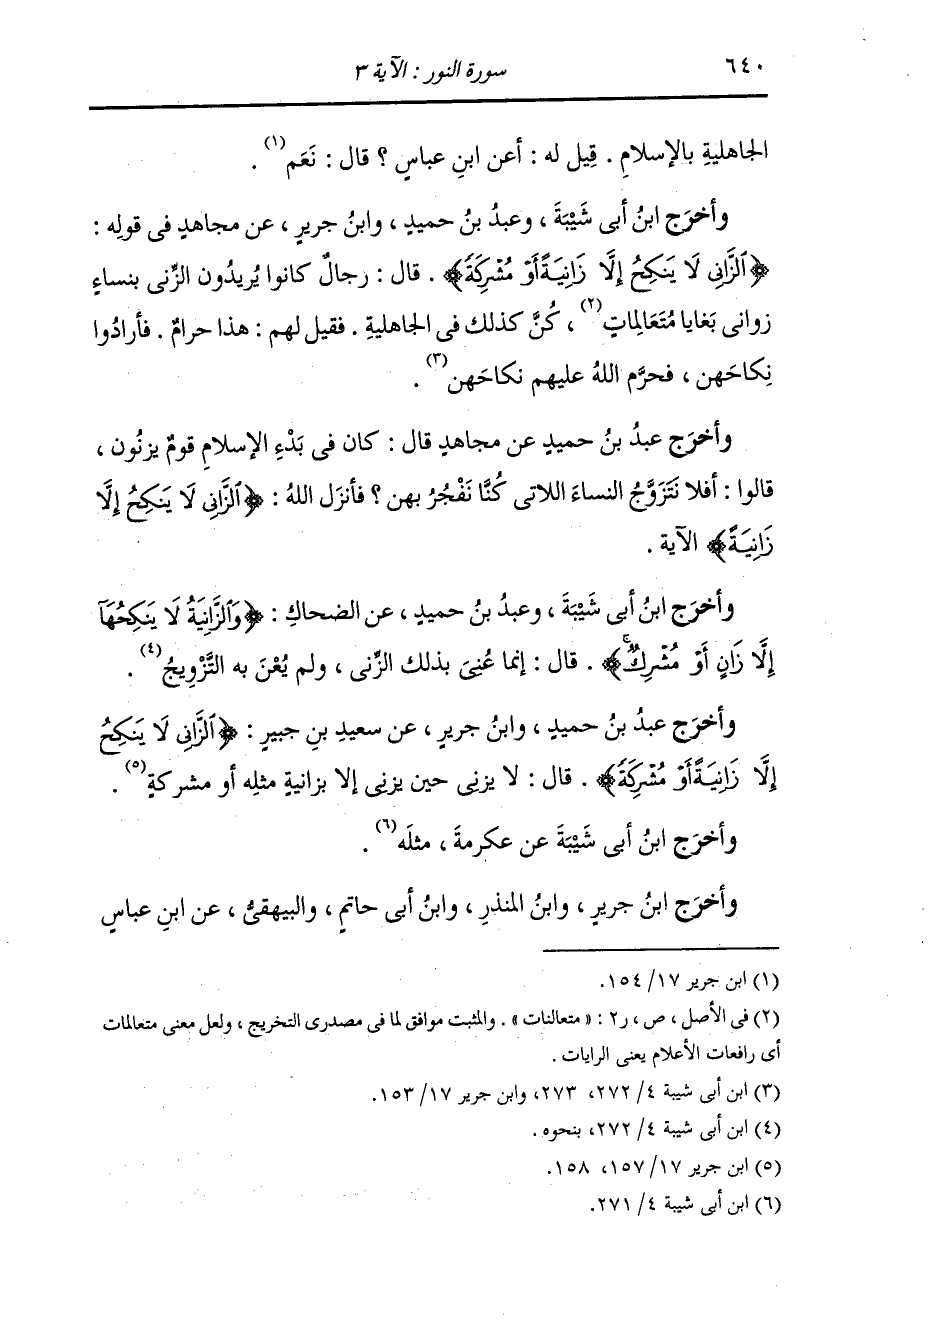 ٦٤٠ سورة النور : الآية ٣
الجاهليةِ بالإسلامِ . قِيل له : أعن ابنِ عباسٍ ؟ قال : نَعَم(١) .
وأخرَج ابنُ أبى شَيْبَةَ ، وعبدُ بنُ حميدٍ ، وابنُ جريرٍ ، عن مجاهدٍ فى قولِه :
﴿ٱلزَّانِى لَا يَنكِحُ إِلَّا زَانِيَةً أَوْ مُشْرِكَةً﴾ . قال : رجالٌ كانوا يُريدُون الزِّنى بنساءٍ
زوانى بَغايا مُتَعَالِماتٍ(٢) ، كُنَّ كذلك فى الجاهليةِ . فقيل لهم : هذا حرامٌ . فأرادُوا
نِكاحَهن ، فحرَّم اللهُ عليهم نكاحَهن(٣) .
وأخرَج عبدُ بنُ حميدٍ عن مجاهدٍ قال : كان فى بَدْءِ الإسلامِ قومٌ يزنُون ،
قالوا : أفلا نَتَزَوَّجُ النساءَ اللاتى كُنَّا نَفْجُرُ بهن ؟ فأنزَل اللهُ : ﴿ٱلزَّانِى لَا يَنكِحُ إِلَّا
زَانِيَةً﴾ الآية .
وأخرَج ابنُ أبى شَيْبَةَ ، وعبدُ بنُ حميدٍ ، عن الضحاكِ : ﴿وَٱلزَّانِيَةُ لَا يَنكِحُهَآ
إِلَّا زَانٍ أَوْ مُشْرِكٌۚ﴾ . قال : إنما عُنِىَ بذلك الزِّنى ، ولم يُعْنَ به التَّزْوِيجُ(٤) .
وأخرَج عبدُ بنُ حميدٍ ، وابنُ جريرٍ ، عن سعيدِ بنِ جبيرٍ : ﴿ٱلزَّانِى لَا يَنكِحُ
إِلَّا زَانِيَةً أَوْ مُشْرِكَةً﴾ . قال : لا يزنِى حين يزنِى إلا بزانيةٍ مثلِه أو مشركةٍ(٥) .
وأخرَج ابنُ أبى شَيْبَةَ عن عكرمةَ ، مثلَه(٦) .
وأخرَج ابنُ جريرٍ ، وابنُ المنذرِ ، وابنُ أبى حاتمٍ ، والبيهقىُّ ، عن ابنِ عباسٍ
(١) ابن جرير ١٧/ ١٥٤.
(٢) فى الأصل ، ص ، ر٢ : « متعالنات » . والمثبت موافق لما فى مصدرى التخريج ، ولعل معنى متعالمات
أى رافعات الأعلام يعنى الرايات .
(٣) ابن أبى شيبة ٤/ ٢٧٢، ٢٧٣، وابن جرير ١٧/ ١٥٣.
(٤) ابن أبى شيبة ٤/ ٢٧٢، بنحوه .
(٥) ابن جرير ١٧/ ١٥٧، ١٥٨.
(٦) ابن أبى شيبة ٤/ ٢٧١.